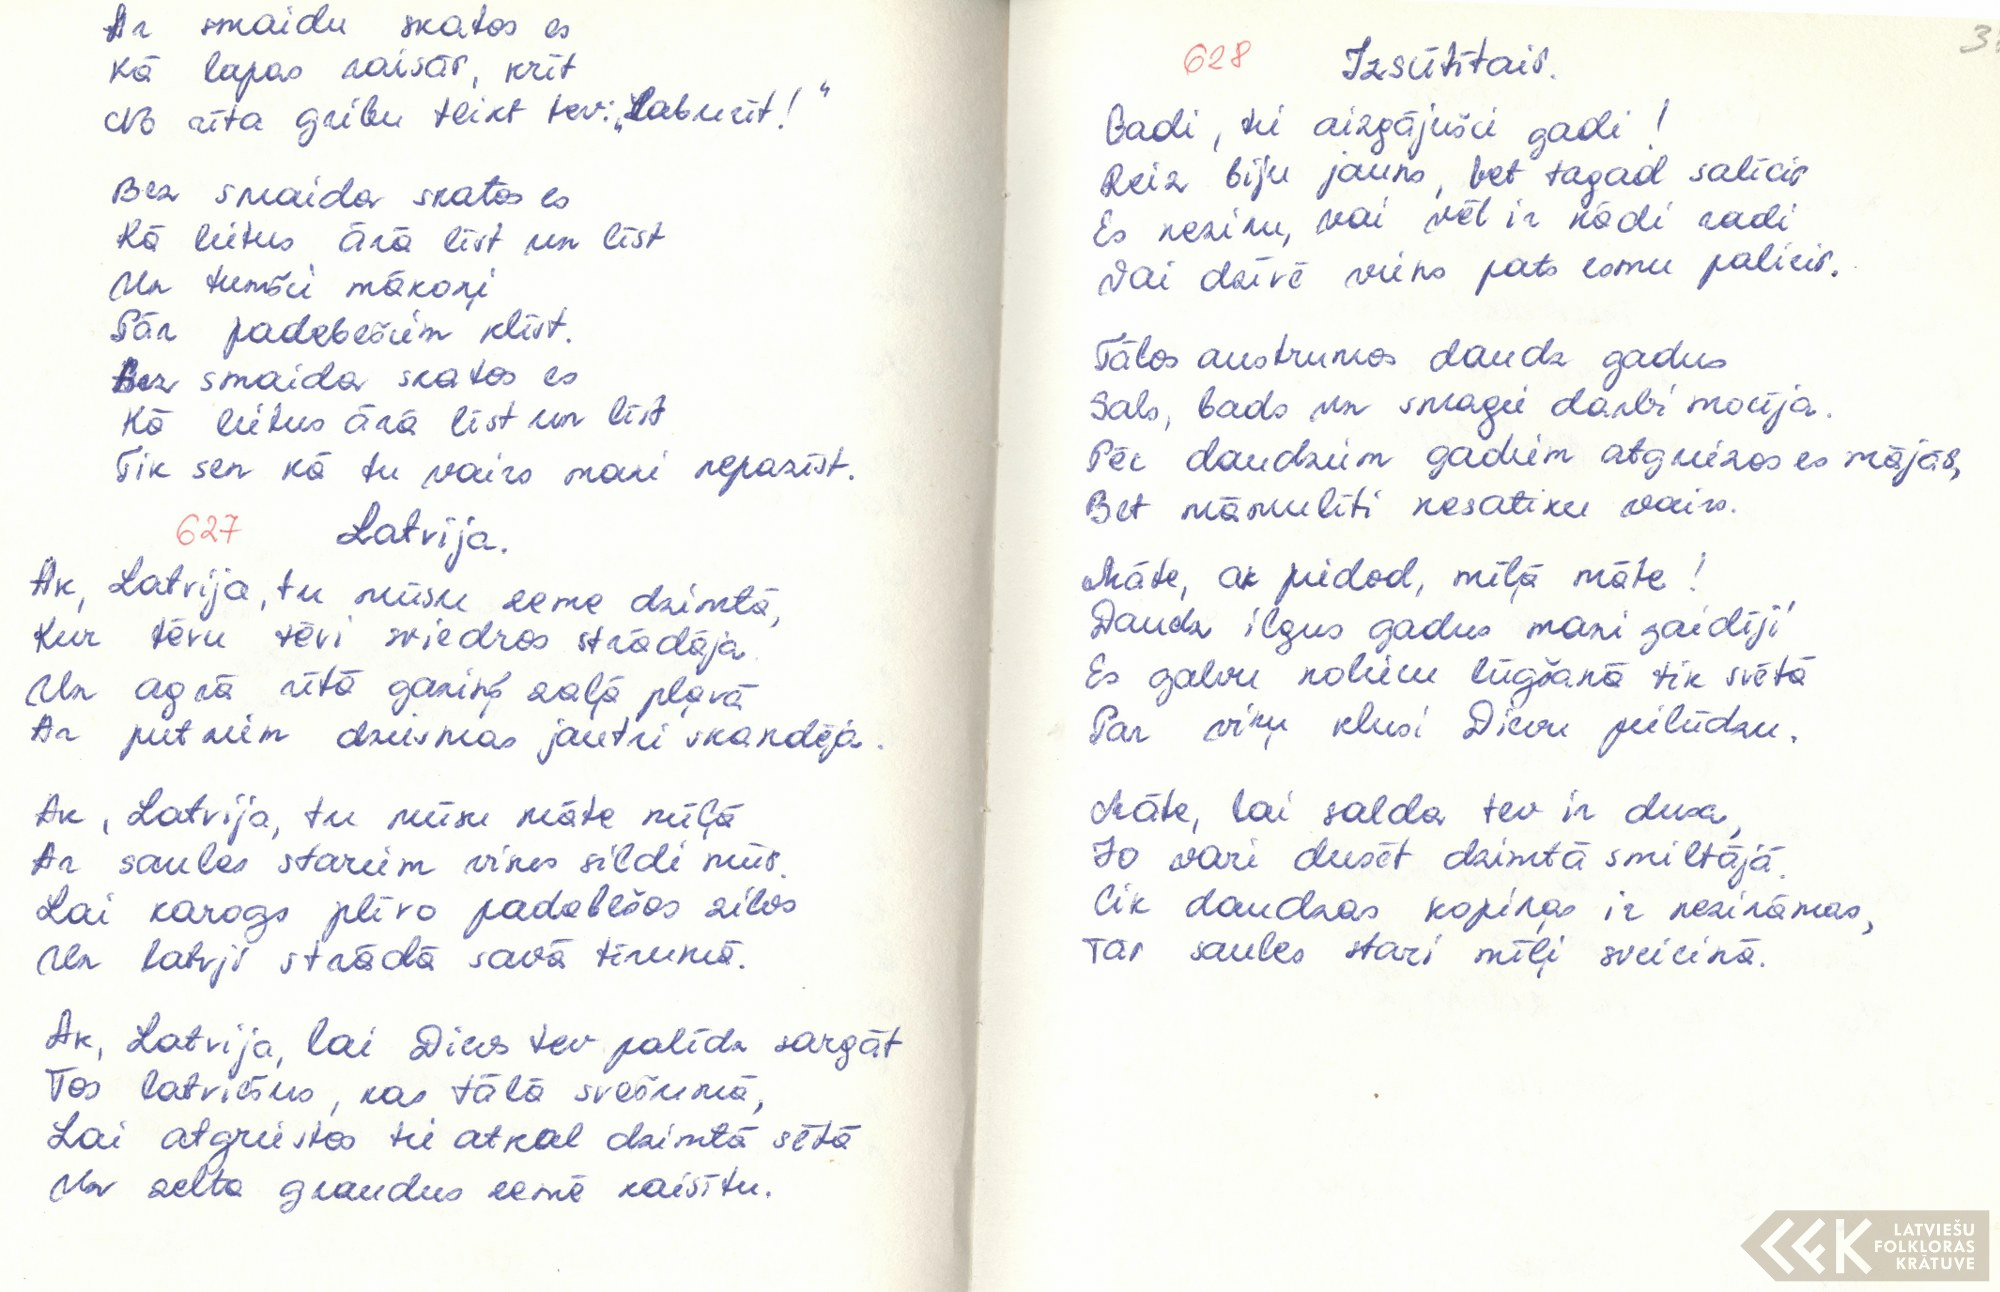 Ar smaidu skatos es
Kā lapas raisās, krīt
No rīta gribu teikt tev: „Laburīt!"
Bez smaida skatos es
Kā lietus ārā līst un līst
Un tumši mākoņi
Pār padebešiem klīst.
Bez smaida skatos es
Kā lietus ārā līst un līst
Tik sen kā tu vairs mani nepazīst.
627 Latvija.
Ak, Latvija, tu mūsu zeme dzimtā,
Kur tēvu tēvi sviedros strādāja.
Un agrā rītā ganiņš zaļā pļavā
Ar putniem dziesmas jautri skandēja.
Ak, Latvija, tu mūsu māte mīļā
Ar saules stariem viens sildi mūs.
Lai karogs plīvo padebešos zilos
Un latvji strādā savā tīrumā.
Ak, Latvija, lai Dievs tev palīdz sargāt
Tos latviešus, kas tālā svešumā,
Lai atgriestos tie atkal dzimtā sētā
Un zelta graudus zemē kaisītu.
3
628 Izsūtītais.
Gadi, tie aizgājušie gadi!
Reiz biju jauns, bet tagad salīcis
Es nezinu, vai vēl ir kādi radi
Vai dzīvē viens pats esmu palicis.
Tālos austrumos daudz gadus
Sals, bads un smagie darbi mocīja.
Pēc daudziem gadiem atgriezos es mājās,
Bet māmulīti nesatiku vairs.
Māte, ak piedod, mīļā māte!
Daudz ilgus gadus mani gaidīji
Es galvu noliecu lūgšanā tik svētā
Par viņu klusi Dievu pielūdzu.
Māte, lai salda tev ir dusa,
Jo vari dusēt dzimtā smiltājā.
Cik daudzas kopiņas ir nezināmas,
Tās saules stari mīļi sveicinā.
LATVIEŠU
FOLKLORAS
KRĀTUVE